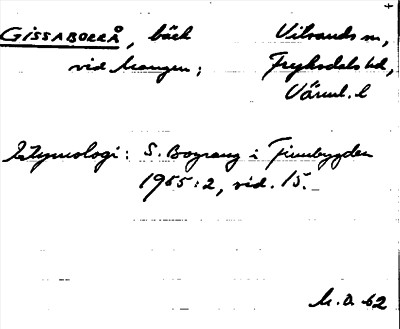 GISSABORRÅ, bäck Vitsands sn,
vid Mangen; Fryksdals hd,
Värml. l
Etymologi: S. Bograng i Finnbygden
1965:2, sid. 15.
M.O. 62